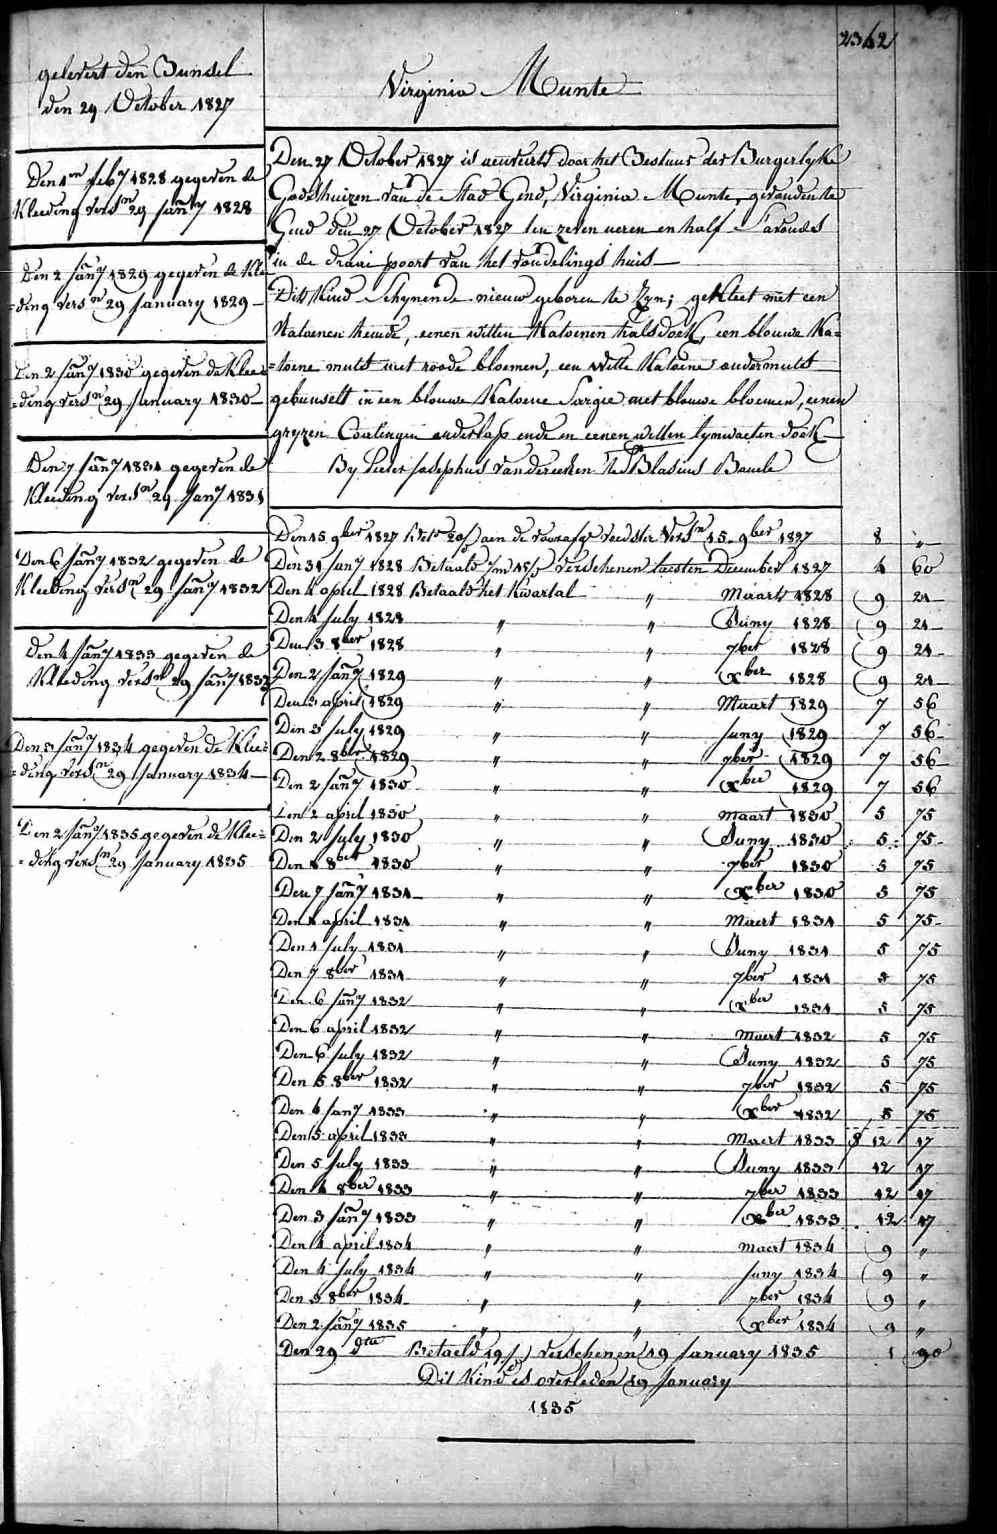 2342
gelevert den Bunsel
den 29 October 1827
Den 1en feby 1828 gegeven de
Kleeding versn 29 Jany 1828
Den 2 Jany 1829 gegeven de Klee
=ding versn 29 January 1829
Den 2 Jany 1830 gegeven de Klee=
=ding versn 29 January 1830
Den 7 Jany 1831 gegeven de
Kleeding versn 29 Jany 1831
Den 6 Jany 1832 gegeven de
Kleeding versn 29 Jany 1832
Den 4 Jany 1833 gegeven de
Kleeding versn 29 Jany 1833
Den 3 Jany 1834 gegeven de Klee=
=ding versn 29 January 1834
Den 2 Jany 1835 gegeven de Klee=
=ding versn 29 January 1835
Virginia Munte
Den 27 October 1827 is aenveird door het Bestuur der Burgerlyke
Godshuizen van de Stad Gend, Virginia Munte, gevonden te
Gend den 27 October 1827 ten zeven ueren en half 's avonds
in de draai poort van het vondelings huis
Dit Kind Schynende nieuw geboren te Zyn; gekleet met een
Katoenen hemde, eenen witten Katoenen halsdoek, een blouwe Ka=
=toene muts met roode bloemen, een witte Katoene ondermuts
gebunselt in een blouwe Katoene Sargie met blouwe bloemen, eenen
gryzen Coatingen onderlap ende in eenen witten lynwaeten doek
By Pieter Josephus vandereeken Blasius Boucle
Den 15 9ber 1827 20 aen de voorafge versn 15 9ber 1827 8 "
Den 31 Jany 1828 Betaald verschenen laesten December 1827 4 60
Den 4 april 1828 Betaald het Kwartal " Maart 1828 9 21
Den 4 July 1828 " " Juny 1828 9 21
Den 3 8ber 1828 " " 7ber 1828 9 21
Den 2 Jany 1829 " " Xber 1828 9 21
Den 3 april 1829 " " Maart 1829 7 56
Den 3 July 1829 " " Juny 1829 7 56
Den 2 8ber 1829 " " 7ber 1829 7 56
Den 2 Jany 1830 " " Xber 1829 7 56
Den 2 april 1830 " " maart 1830 5 75
Den 2 July 1830 " " Juny 1830 5 75
Den 1 8ber 1830 " " 7ber 1830 5 75
Den 7 Jany 1831 " " Xber 1830 5 75
Den 1 april 1831 " " Maert 1831 5 75
Den 1 July 1831 " " Juny 1831 5 75
Den 7 8ber 1831 " " 7ber 1831 5 75
Den 6 Jany 1832 " " Xber 1831 5 75
Den 6 april 1832 " " Maert 1832 5 75
Den 6 July 1832 " " Juny 1832 5 75
Den 5 8ber 1832 " " 7ber 1832 5 75
Den 4 Jany 1833 " " Xber 1832 5 75
Den 5 april 1833 " " Maert 1833 12 17
Den 5 July 1833 " " Juny 1833 12 17
Den 4 8ber 1833 " " 7ber 1833 12 17
Den 3 Jany 1833 " " Xber 1833 12 17
Den 4 april 1834 " " maert 1834 9 "
Den 4 July 1834 " " Juny 1834 9 "
Den 3 8ber 1834 " " 7ber 1834 9 "
Den 2 Jany 1835 " " Xber 1834 9 "
Den 29 dto Betaeld 19 verschenen 19 January 1835 1 90
Dit Kind is overleden 19 January
1835